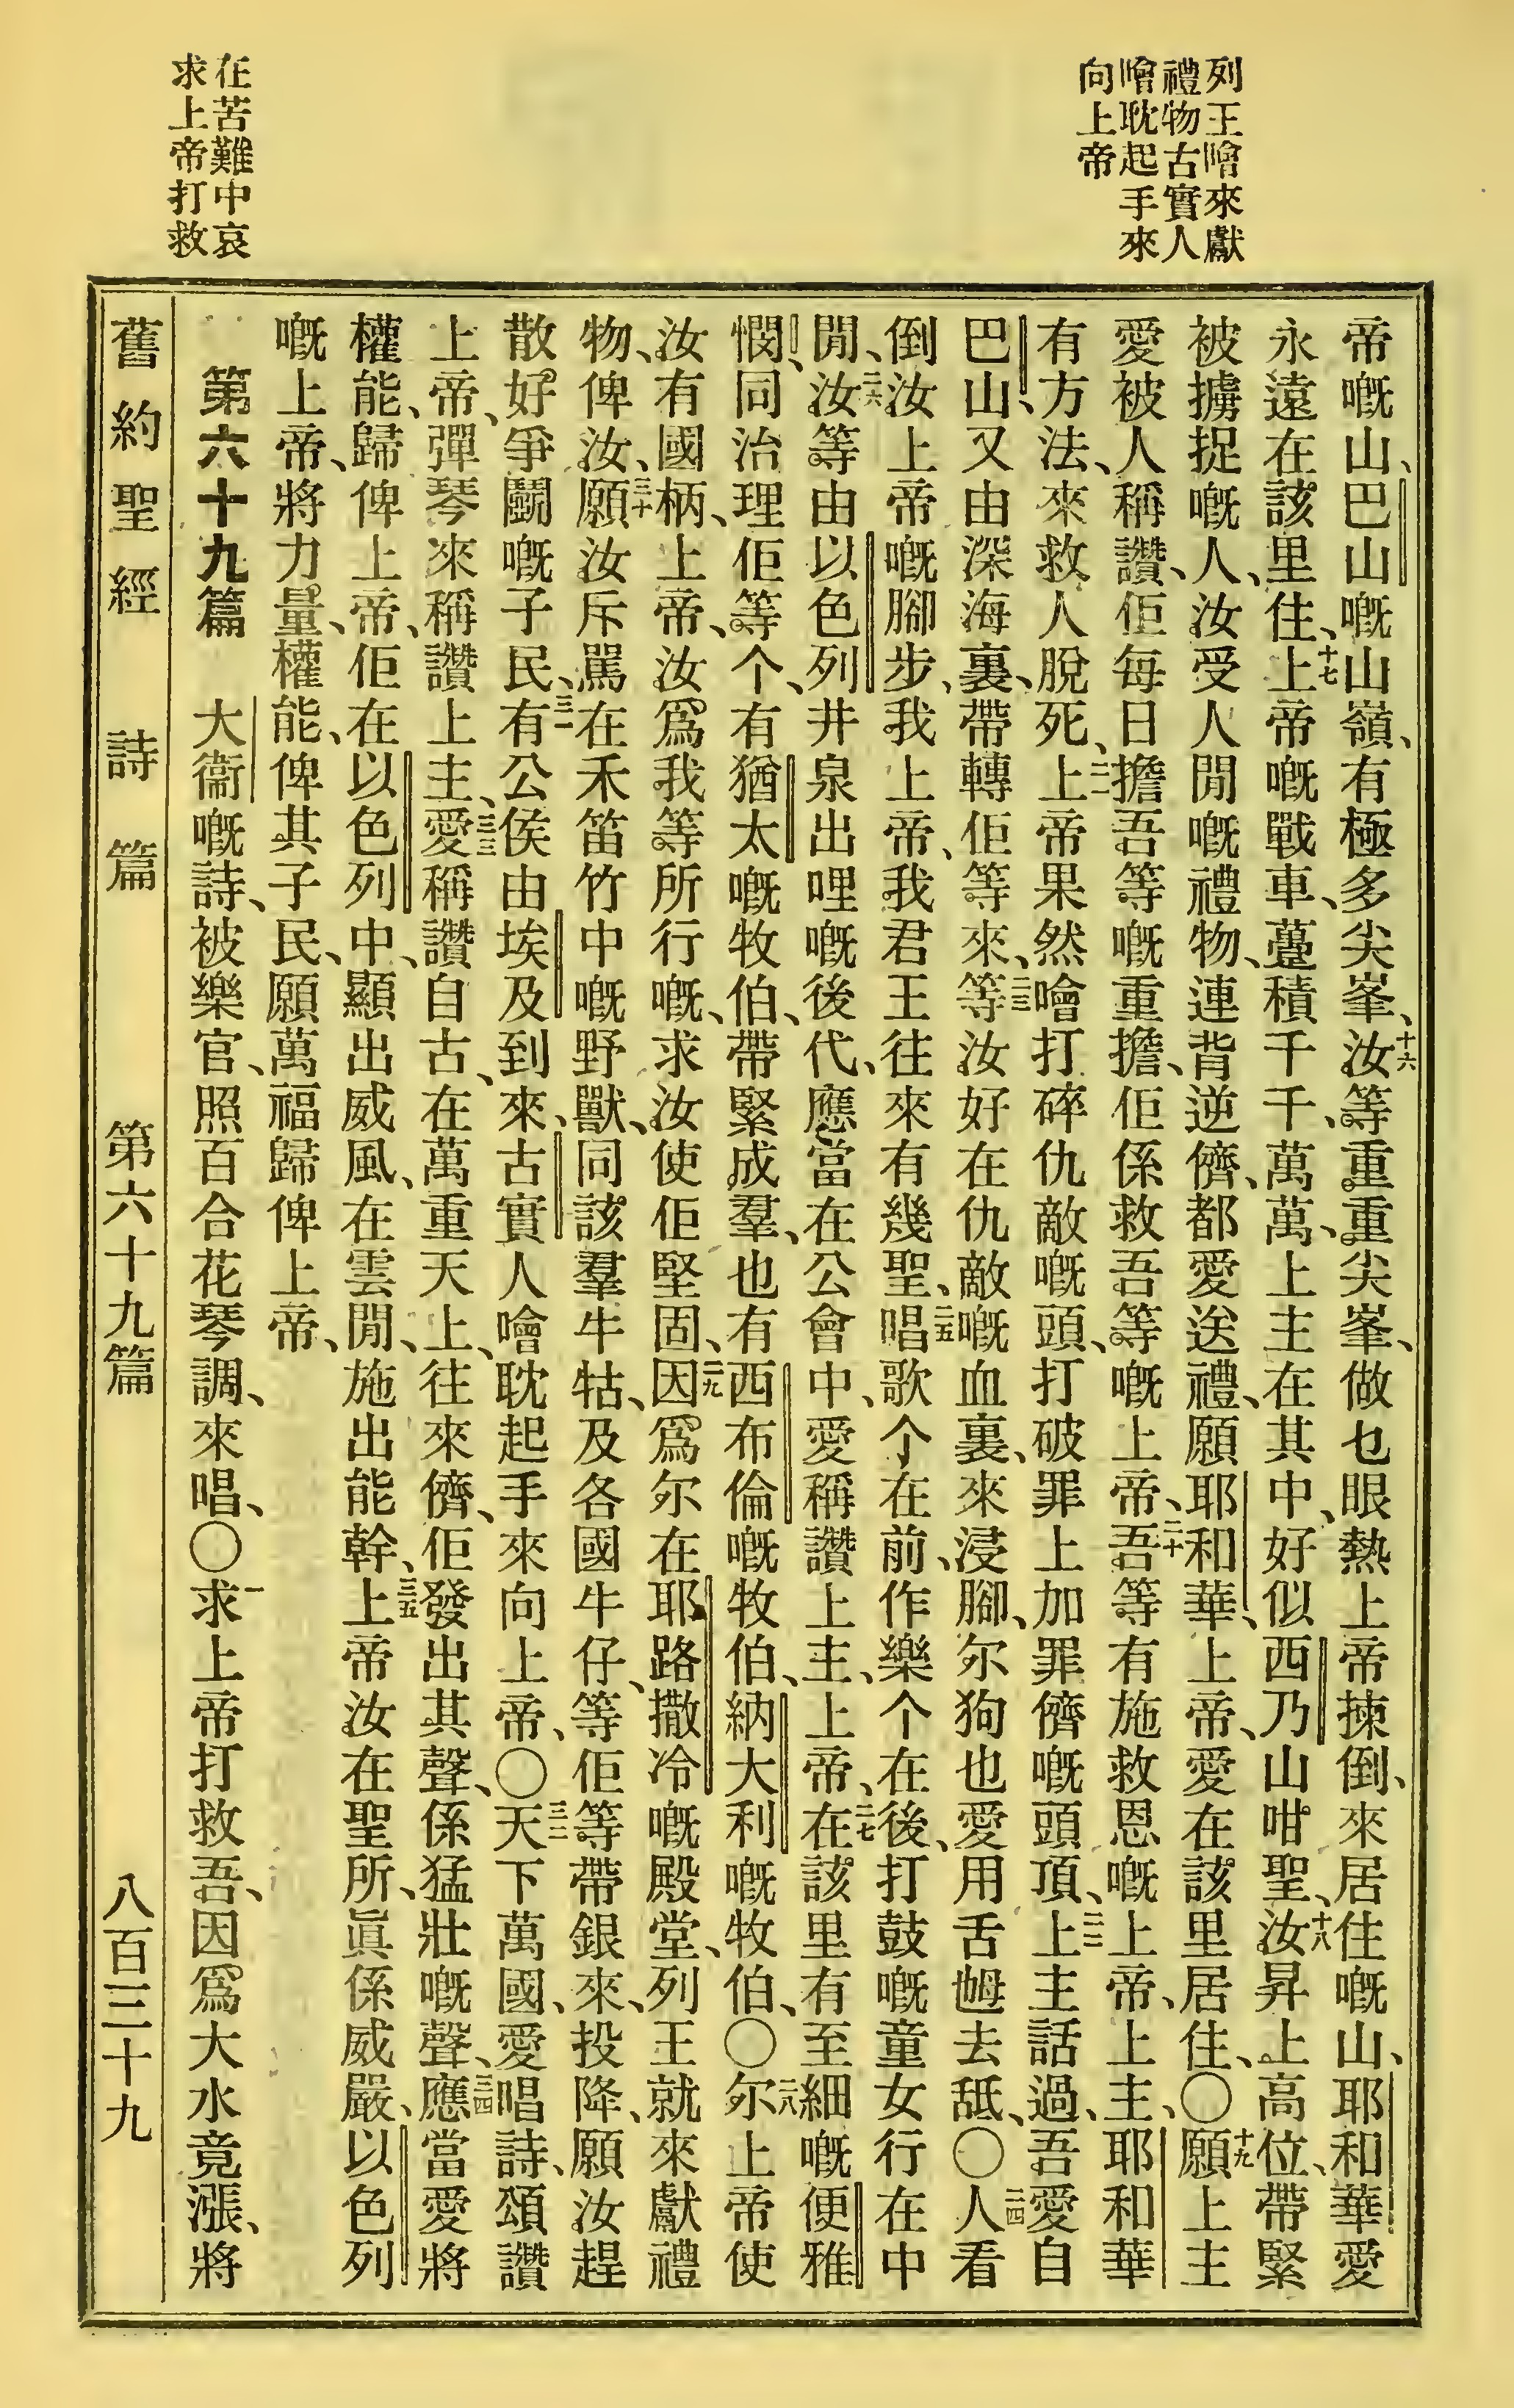 列王噲來獻
禮物古實人
噲耽起手來
向上帝
在苦難中哀
求上帝打救
帝嘅山、巴山嘅山嶺、有極多尖峯、十六汝等重重尖峯、做乜眼熱上帝揀倒、來居住嘅山、耶和華愛
永遠在該里住、十七上帝嘅戰車、躉積千千、萬萬、上主在其中、好似西乃山咁聖、十八汝昇上高位、帶緊
被擄捉嘅人、汝受人閒嘅禮物、連背逆儕、都愛送禮、願耶和華、上帝、愛在該里居住、〇十九願上主
愛被人稱讚、佢每日擔吾等嘅重擔、佢係救吾等嘅上帝、二十吾等有施救恩嘅上帝、上主、耶和華
有方法、來救人脫死、二一上帝果然噲打碎仇敵嘅頭、打破罪上加罪儕嘅頭頂、二二上主話過、吾愛自
巴山、又由深海裏、帶轉佢等來、二三等汝好在仇敵嘅血裏、來浸腳、尔狗也愛用舌乸去舐、〇二四人看
倒汝上帝嘅腳步、我上帝、我君王往來有幾聖、二五唱歌个在前、作樂个在後、打鼓嘅童女行在中
閒、二六汝等由以色列井泉出哩嘅後代、應當在公會中、愛稱讚上主、上帝、二七在該里有至細嘅便雅
憫、同治理佢等个、有猶太嘅牧伯、帶緊成羣、也有西布倫嘅牧伯、納大利嘅牧伯、〇二八尔上帝使
汝有國柄、上帝、汝爲我等所行嘅、求汝使佢堅固、二九因爲尔在耶路撒冷嘅殿堂、列王就來獻禮
物、俾汝、三十願汝斥駡在禾笛竹中嘅野獸、同該羣牛牯、及各國牛仔、等佢等帶銀來、投降、願汝趕
散好爭鬭嘅子民、三一有公侯由埃及到來、古實人噲耽起手來向上帝、〇三二天下萬國、愛唱詩、頌讚
上帝、彈琴來稱讚上主、三三愛稱讚自古、在萬重天上、往來儕、佢發出其聲、係猛壯嘅聲、三四應當愛將
權能、歸俾上帝、佢在以色列中、顯出威風、在雲閒、施出能幹、三五上帝汝在聖所、眞係威嚴、以色列
嘅上帝、將力量、權能、俾其子民、願萬福歸俾上帝、
第六十九篇 大衞嘅詩、被樂官、照百合花琴調、來唱、〇一求上帝打救吾、因爲大水竟漲、將
舊約聖經 詩篇 第六十九篇 八百三十九